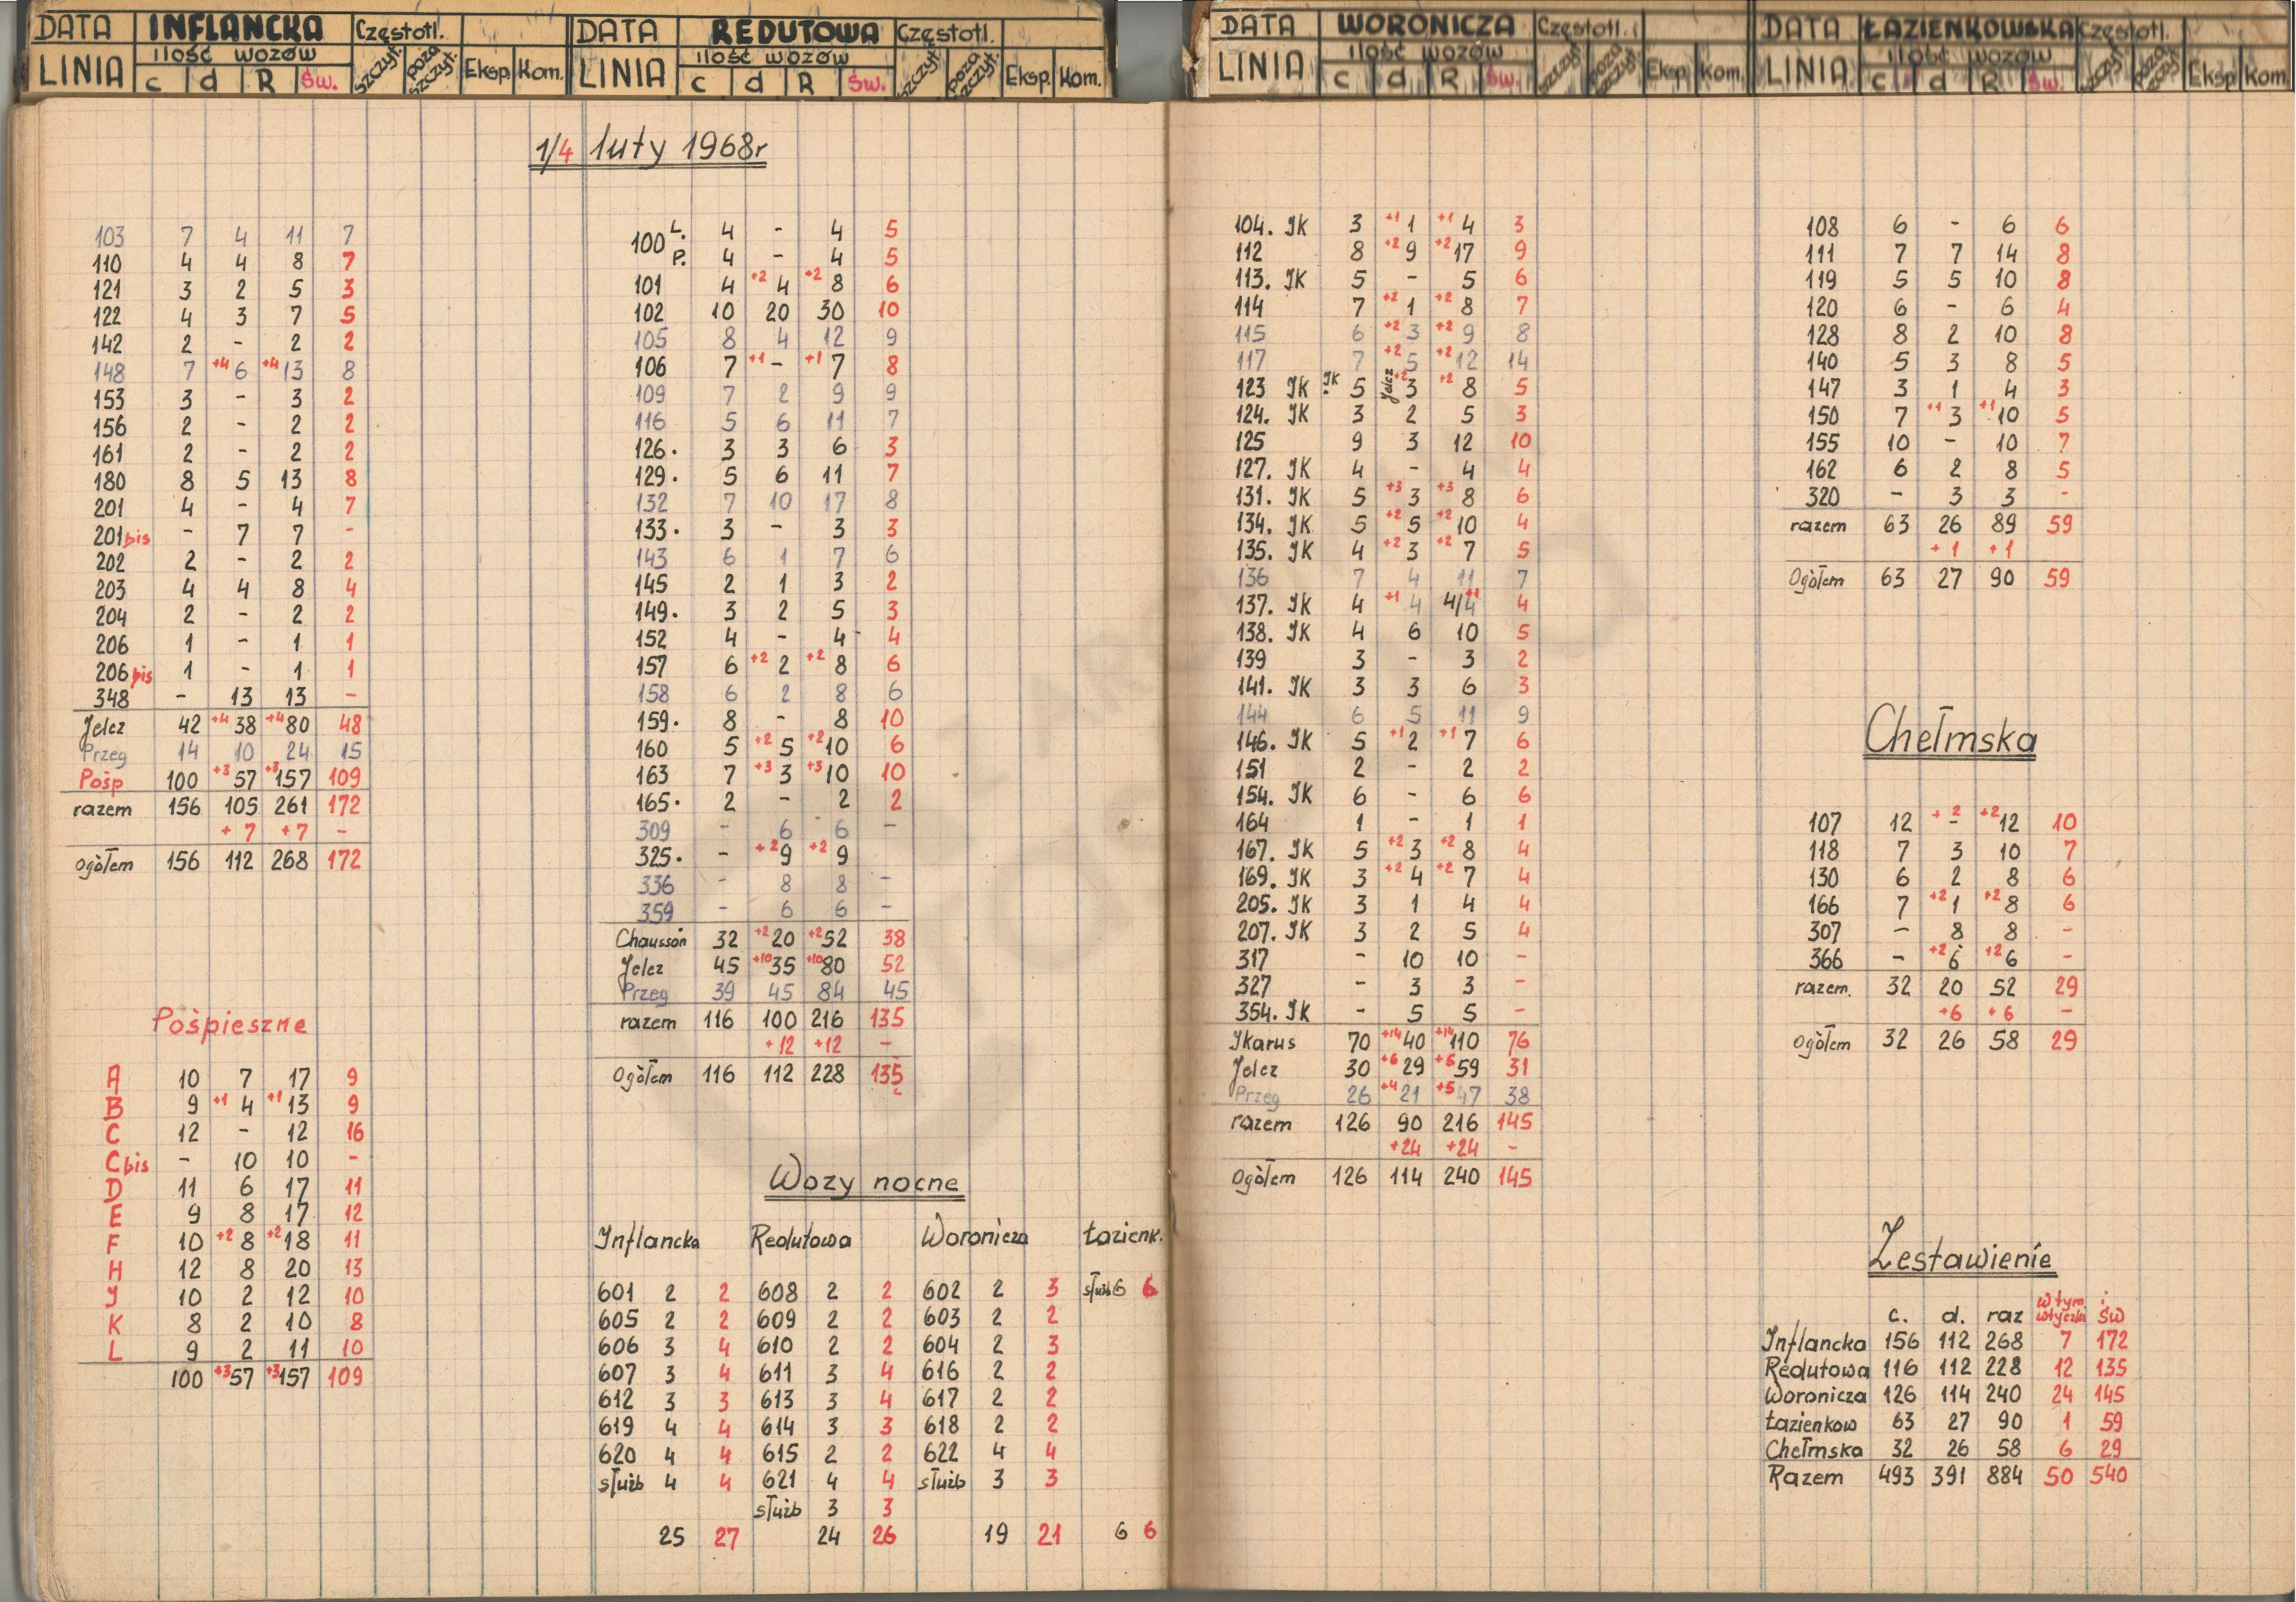 DATA INFLANCKA Częstotl.
LINIA ilość wozów c d R Św. szczyt. poza szczyt. Eksp. Kom.
DATA REDUTOWA Częstotl.
LINIA ilość wozów c d R Św. szczyt. poza szczyt. Eksp. Kom.
DATA WORONICZA Częstotl.
LINIA ilość wozów c d R Św. szczyt poza szczyt. Eksp. Kom.
DATA ŁAZIENKOWSKA Częstotl.
LINIA ilość wozów c d R Św. szczyt poza szczyt. Eksp Kom.
1/4 luty 1968r
103 7 4 11 7
110 4 4 8 7
121 3 2 5 3
122 4 3 7 5
142 2 - 2 2
148 7 +4 6 +4 13 8
153 3 - 3 2
156 2 - 2 2
161 2 - 2 2
180 8 5 13 8
201 4 - 4 7
201 bis - 7 7 -
202 2 - 2 2
203 4 4 8 4
204 2 - 2 2
206 1 - 1 1
206 bis 1 - 1 1
348 - 13 13 -
Jelcz 42 +4 38 +4 80 48
Przeg 14 10 24 15
Pośp 100 +3 57 +3 157 109
razem 156 105 261 172
+ 7 + 7 -
ogółem 156 112 268 172
Pośpieszne
A 10 7 17 9
B 9 +1 4 +1 13 9
C 12 - 12 16
C bis - 10 10 -
D 11 6 17 11
E 9 8 17 12
F 10 +2 8 +2 18 11
H 12 8 20 13
J 10 2 12 10
K 8 2 10 8
L 9 2 11 10
100 +3 57 +3 157 109
100 L. 4 - 4 5
P. 4 - 4 5
101 4 +2 4 +2 8 6
102 10 20 30 10
105 8 4 12 9
106 7 +1 - +1 7 8
109 7 2 9 9
116 5 6 11 7
126. 3 3 6 3
129. 5 6 11 7
132 7 10 17 8
133. 3 - 3 3
143 6 1 7 6
145 2 1 3 2
149. 3 2 5 3
152 4 - 4 4
157 6 +2 2 +2 8 6
158 6 2 8 6
159. 8 - 8 10
160 5 +2 5 +2 10 6
163 7 +3 3 +3 10 10
165. 2 - 2 2
309 - 6 6 -
325. - +2 9 +2 9
336 - 8 8 -
359 - 6 6 -
Chausson 32 +2 20 +2 52 38
Jelcz 45 +10 35 +10 80 52
Przeg 39 45 84 45
razem 116 100 216 135
+ 12 + 12 -
Ogółem 116 112 228 135
Wozy nocne
Inflancka Redutowa Woronicza Łazienk.
601 2 2 608 2 2 602 2 3 służb 6 6
605 2 2 609 2 2 603 2 2
606 3 4 610 2 2 604 2 3
607 3 4 611 3 4 616 2 2
612 3 3 613 3 4 617 2 2
619 4 4 614 3 3 618 2 2
620 4 4 615 2 2 622 4 4
służb 4 4 621 4 4 służb 3 3
służb 3 3
25 27 24 26 19 21 6 6
104. JK 3 +1 1 +1 4 3
112 8 +2 9 +2 17 9
113. JK 5 - 5 6
114 7 +2 1 +2 8 7
115 6 +2 3 +2 9 8
117 7 +2 5 +2 12 14
123 JK JK 5 Jelcz +2 3 +2 8 5
124. JK 3 2 5 3
125 9 3 12 10
127. JK 4 - 4 4
131. JK 5 +3 3 +3 8 6
134. JK 5 +2 5 +2 10 4
135. JK 4 +2 3 +2 7 5
136 7 4 11 7
137. JK 4 +1 4 4/4 +1 4
138. JK 4 6 10 5
139 3 - 3 2
141. JK 3 3 6 3
144 6 5 11 9
146. JK 5 +1 2 +1 7 6
151 2 - 2 2
154. JK 6 - 6 6
164 1 - 1 1
167. JK 5 +2 3 +2 8 4
169. JK 3 +2 4 +2 7 4
205. JK 3 1 4 4
207. JK 3 2 5 4
317 - 10 10 -
327 - 3 3 -
354. JK - 5 5 -
Ikarus 70 +14 40 +14 110 76
Jelcz 30 +6 29 +6 59 31
Przeg 26 +4 21 +5 47 38
razem 126 90 216 145
+24 +24 -
Ogółem 126 114 240 145
108 6 - 6 6
111 7 7 14 8
119 5 5 10 8
120 6 - 6 4
128 8 2 10 8
140 5 3 8 5
147 3 1 4 3
150 7 +1 3 +1 10 5
155 10 - 10 7
162 6 2 8 5
320 - 3 3 -
razem 63 26 89 59
+ 1 + 1
Ogółem 63 27 90 59
Chełmska
107 12 +2 - +2 12 10
118 7 3 10 7
130 6 2 8 6
166 7 +2 1 +2 8 6
307 - 8 8 -
366 - +2 6 +2 6 -
razem. 32 20 52 29
+6 + 6 -
Ogółem 32 26 58 29
Zestawienie
c. d. raz w tym wtyczki i św
Inflancka 156 112 268 7 172
Redutowa 116 112 228 12 135
Woronicza 126 114 240 24 145
Łazienkow 63 27 90 1 59
Chełmska 32 26 58 6 29
Razem 493 391 884 50 540